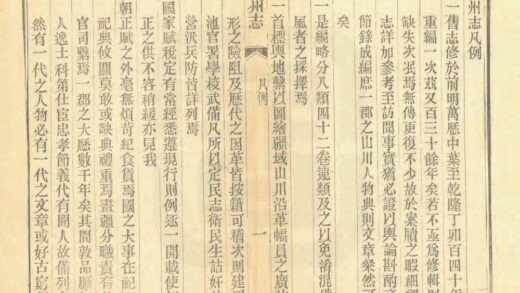 州志凡例
一舊志修於前明萬歷中葉至乾隆丁卯百四十年
重編一次茲又百三十餘年矣若不亟爲修輯則
缺失次泯焉無傳更復不少故於案牘之暇細繹
志詳加參考至訪聞事實猶必證以輿論斟酌
節錄成編庶一郡之山川人物典則文章粲然可
矣
一是編略分八類四十二卷連類及之以免淆混
風者之採擇焉
州志
凡例
一
一首標輿地繫以圖繪疆域山川沿革幅員之廣
形之險阻及歷代之因革皆按籍可稽次則建
池官署學校武備凡所以定民志衛民生詰奸
營汛兵防皆詳列焉
國家賦稅定有常經悉遵現行則例逐一開載使
正之供不容稍緩亦見我
朝正賦之外毫無煩苛紀食貨焉國之大事在祀
祀典攸關莫敢或缺典禮重焉畫疆分職責有
官司繫焉一郡之大歷數千年矣其間敦品
人逸士科第仕宦忠孝節義代有聞人故備列
然有一代之人物必有一代之文章或好古窮